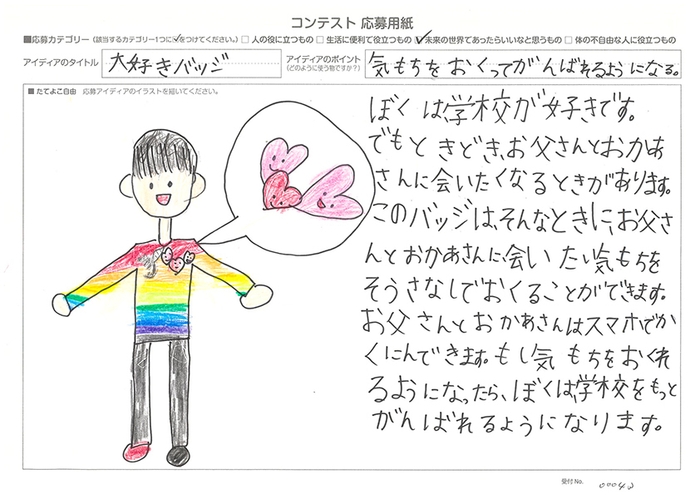 コンテスト 応募用紙
■応募カテゴリー（該当するカテゴリー1つに☑をつけてください。） □ 人の役に立つもの □ 生活に便利で役立つもの ☑ 未来の世界であったらいいなと思うもの □ 体の不自由な人に役立つもの
アイディアのタイトル 大好きバッジ
アイディアのポイント（どのように使う物ですか？） 気もちをおくってがんばれるようになる。
■ たてよこ自由 応募アイディアのイラストを描いてください。
ぼくは学校が好きです。
でもときどき、お父さんとおかあ
さんに会いたくなるときがあります。
このバッジは、そんなときに、お父さ
んとおかあさんに会いたい気もちを
そうさなしでおくることができます。
お父さんとおかあさんはスマホでか
くにんできます。もし気もちをおくれ
るようになったら、ぼくは、学校をもっと
がんばれるようになります。
受付No. 00042